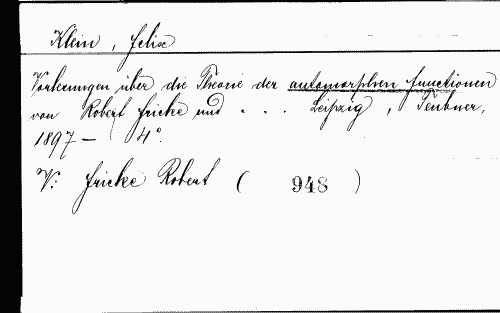 Klein, Felix
Vorlesungen über die Theorie der automorphen Functionen
von Robert Fricke und . . . Leipzig, Teubner,
1897 — 4°.
V: Fricke Robert ( 948 )